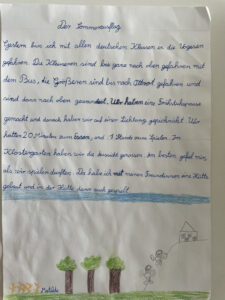 Der Sommerausflug
Gestern bin ich mit allen deutschen Klassen in die Vogesen
gefahren. Die Kleineren sind bis ganz nach oben gefahren mit
dem Bus, die Größeren sind bis nach gefahren und
sind dann nach oben gewandert. Wir haben eine Frühstückspause
gemacht und danach haben wir auf einer Lichtung gepicknickt. Wir
hatten 20 Minuten zum Essen, und 1 Stunde zum Spielen. Im
Klostergarten haben wir die Aussicht genossen. Am besten gefiel mir,
als wir spielen durften. Da habe ich mit meinen Freundinnen eine Hütte
gebaut und in der Hütte dann auch gespielt.